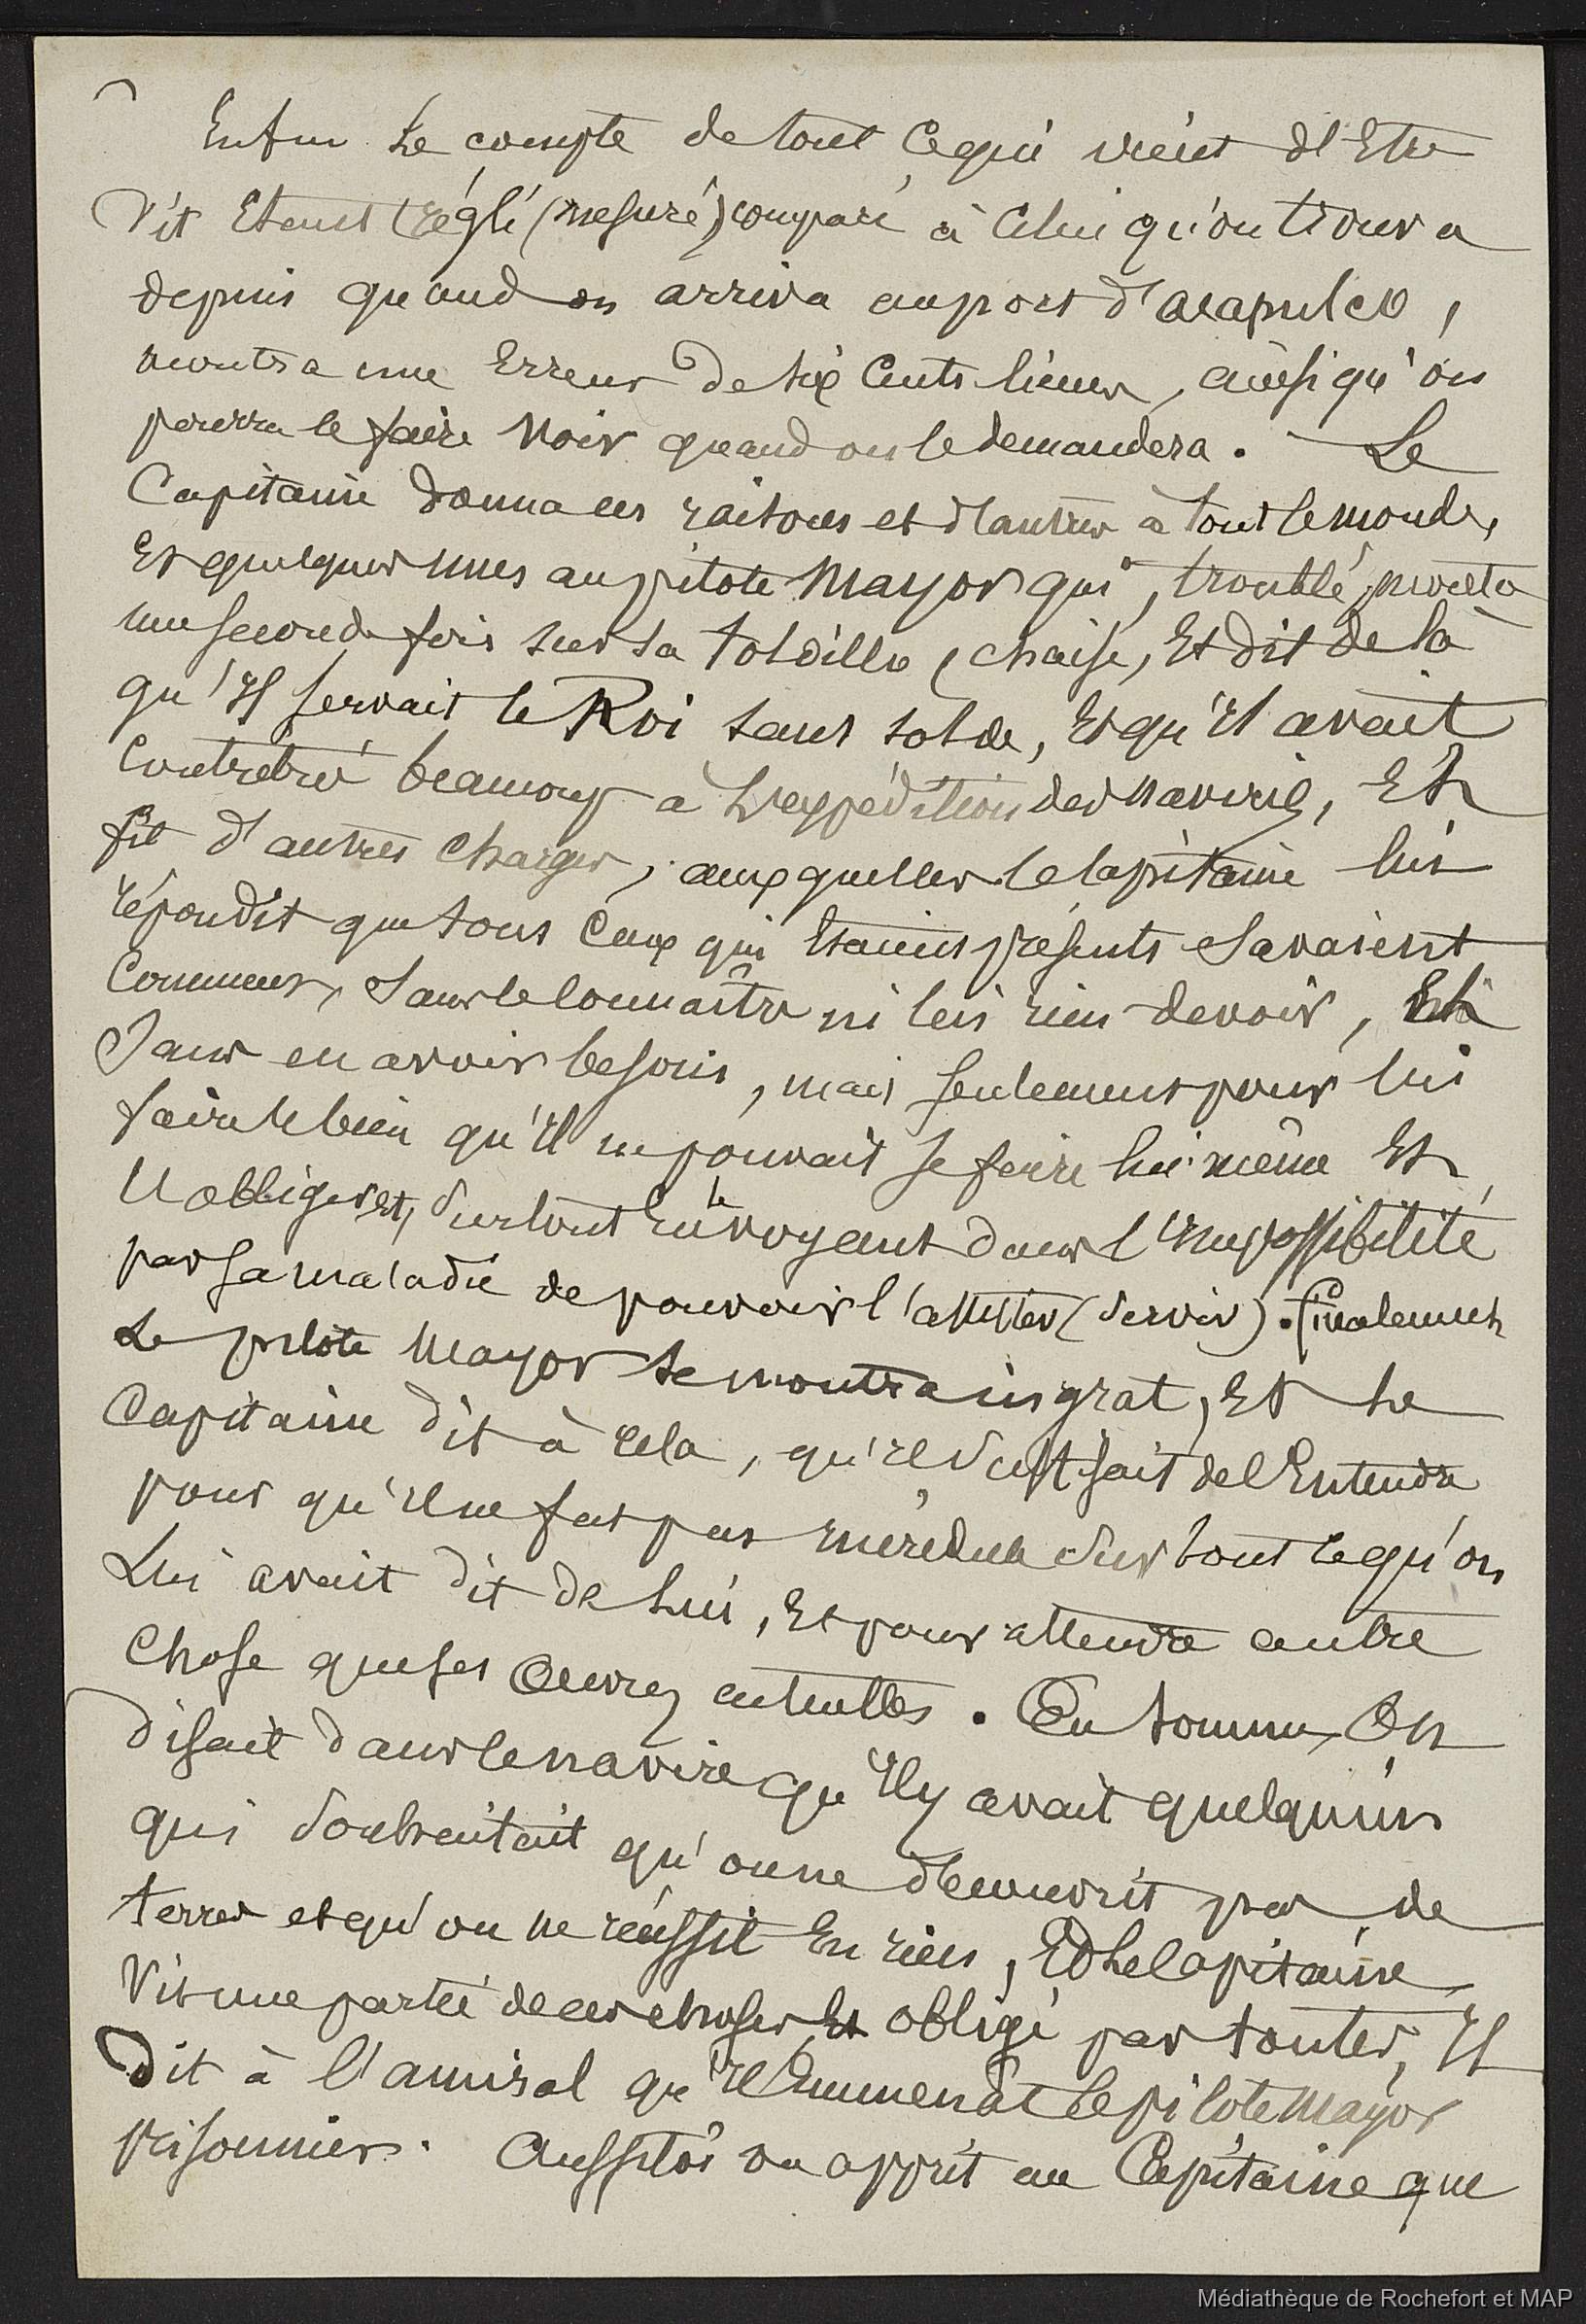 Enfin Le compte de tout Ce qui vient d'Etre
Dit Etant Réglé (mesuré) comparé à Celui qu'on trouva
depuis quand on arriva au port d'acapulco,
montra une Erreur de six Cents lieues, ainsi qu'on
pourra le faire Voir quand on le demandera. - Le
Capitaine donna ces raisons et d'autres à tout le monde,
Et quelques unes au pilote Mayor qui, troublé, monta
une seconde fois sur sa toldille, chaise, Et dit de là
qu'Il servait le Roi sans solde, Et qu'Il avait
Contribué beaucoup à L'expédition des navires, Et
fit d'autres Charges, auxquelles le Capitaine lui
répondit que tous Ceux qui Etaient présents savaient
Comment, sans le Connaître ni lui rien devoir, Et
Sans en avoir besoin, mais seulement pour lui
faire le bien qu'Il ne pouvait se faire lui-même Et
l'obliger et, surtout En le voyant dans l'Impossibilité
par sa maladie de pouvoir l'assister (servir). Finalement
Le pilote Mayor se montra ingrat, Et Le
Capitaine dit à cela, qu'Il suffisait de l'Entendre
pour qu'Il ne fut pas incrédule sur tout ce qu'on
Lui avait dit de Lui, Et pour attendre autre
Chose que ses Œuvres actuelles. En somme, On
disait dans le navire qu'Il y avait quelqu'un
qui souhaitait qu'on ne découvrît pas de
terres et qu'on ne réussit En rien, Et Le Capitaine
Vit une partie de ces choses, Et obligé par toutes, Il
Dit à l'amiral qu'Il Emmenât le pilote Mayor
prisonnier. Aussitôt on apprit au Capitaine que
Médiathèque de Rochefort et MAP